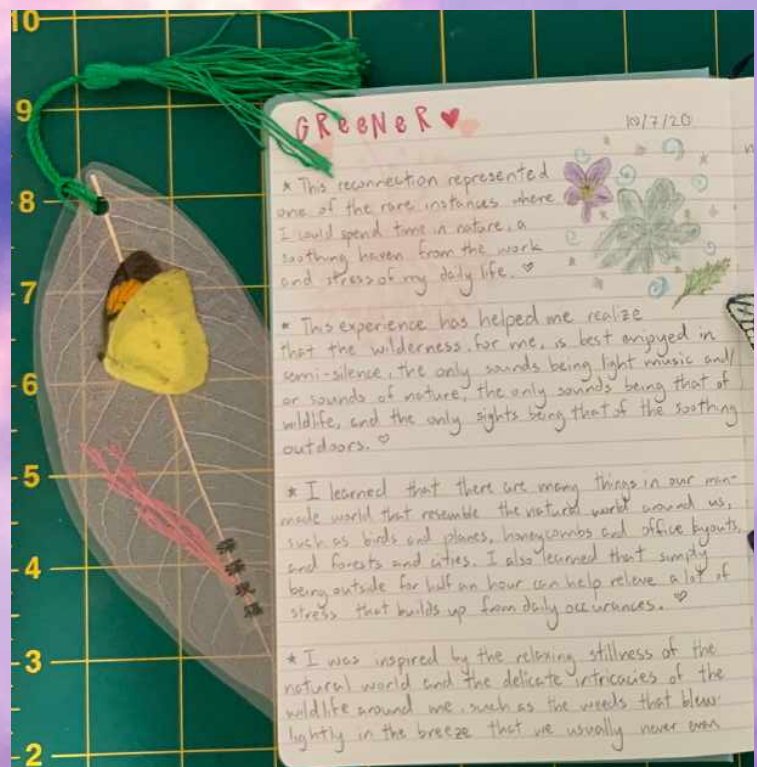 10
9
8
7
6
5
4
3
2
GREENER
10/7/20
* This reconnection represented
one of the rare instances where
I could spend time in nature, a
soothing haven from the work
and stress of my daily life. ♡
* This experience has helped me realize
that the wilderness, for me, is best enjoyed in
semi-silence, the only sounds being light music and/
or sounds of nature, the only sounds being that of
wildlife, and the only sights being that of the soothing
outdoors. ♡
* I learned that there are many things in our man-
made world that resemble the natural world around us,
such as birds and planes, honeycombs and office layouts,
and forests and cities. I also learned that simply
being outside for half an hour can help relieve a lot of
stress that builds up from daily occurances. ♡
* I was inspired by the relaxing stillness of the
natural world and the delicate intricacies of the
wildlife around me, such as the weeds that blew
lightly in the breeze that we usually never even